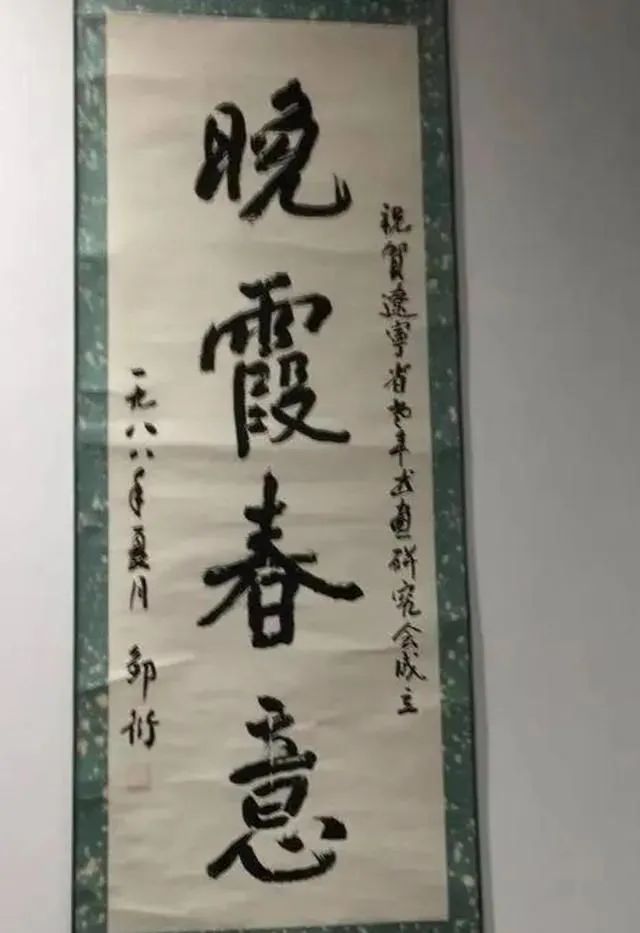 祝賀遼寧省老年书画研究会成立
晚霞春意
一九八八年夏月 邹衍